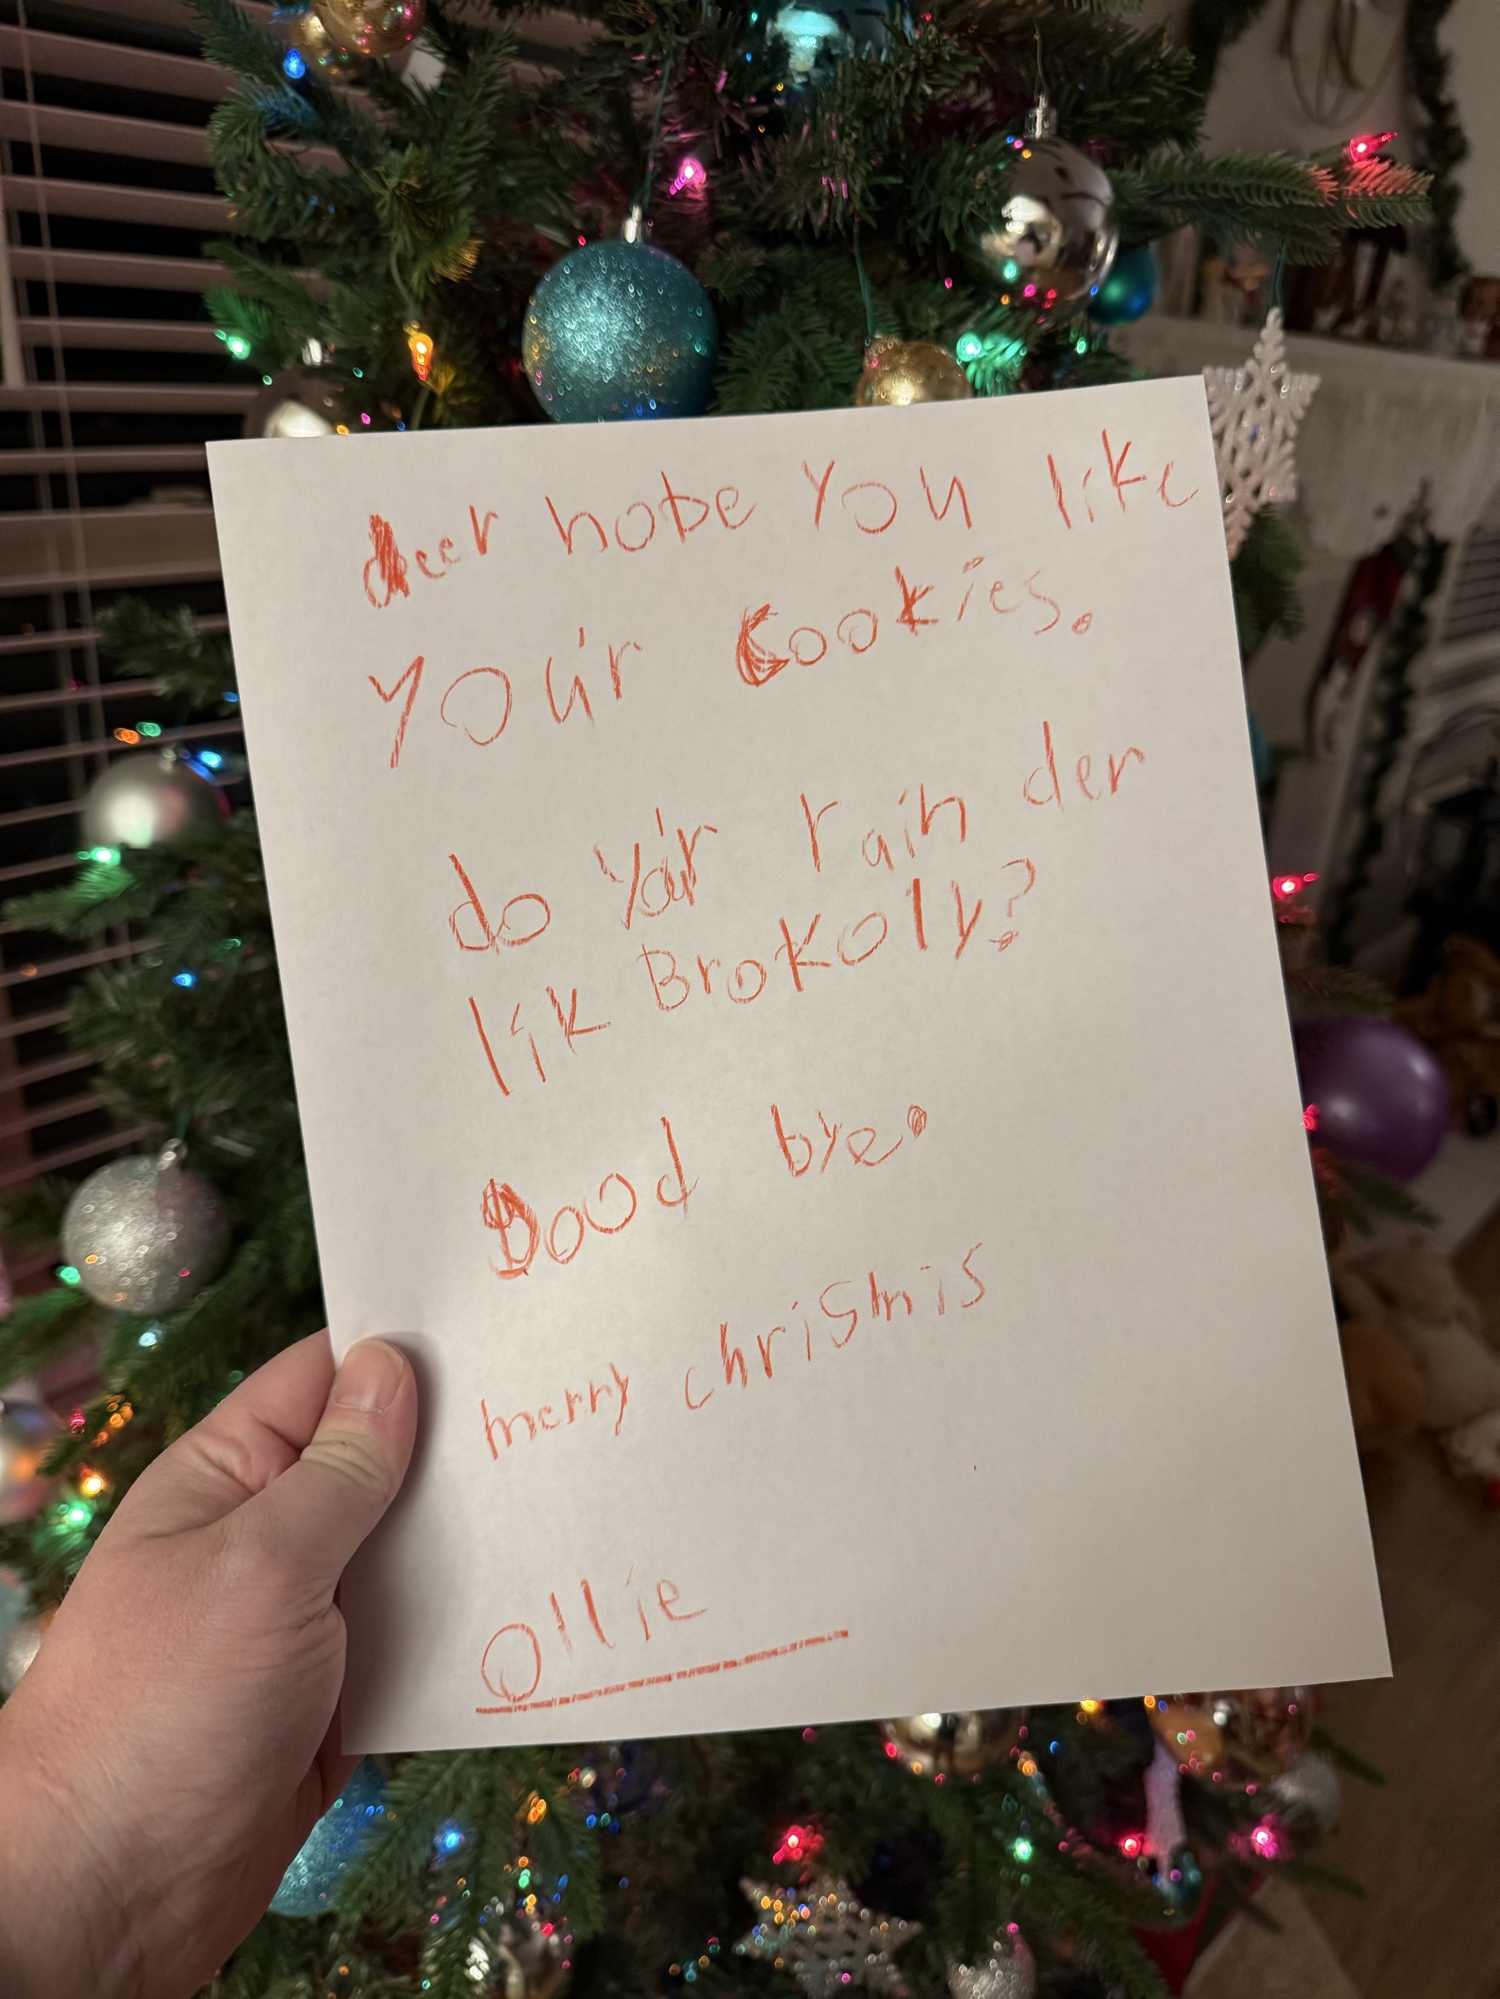 deer hobe you like
you'r Cookies.
do yo'ur rain der
lik Brokoly?
Good bye.
merry chrismis
Ollie